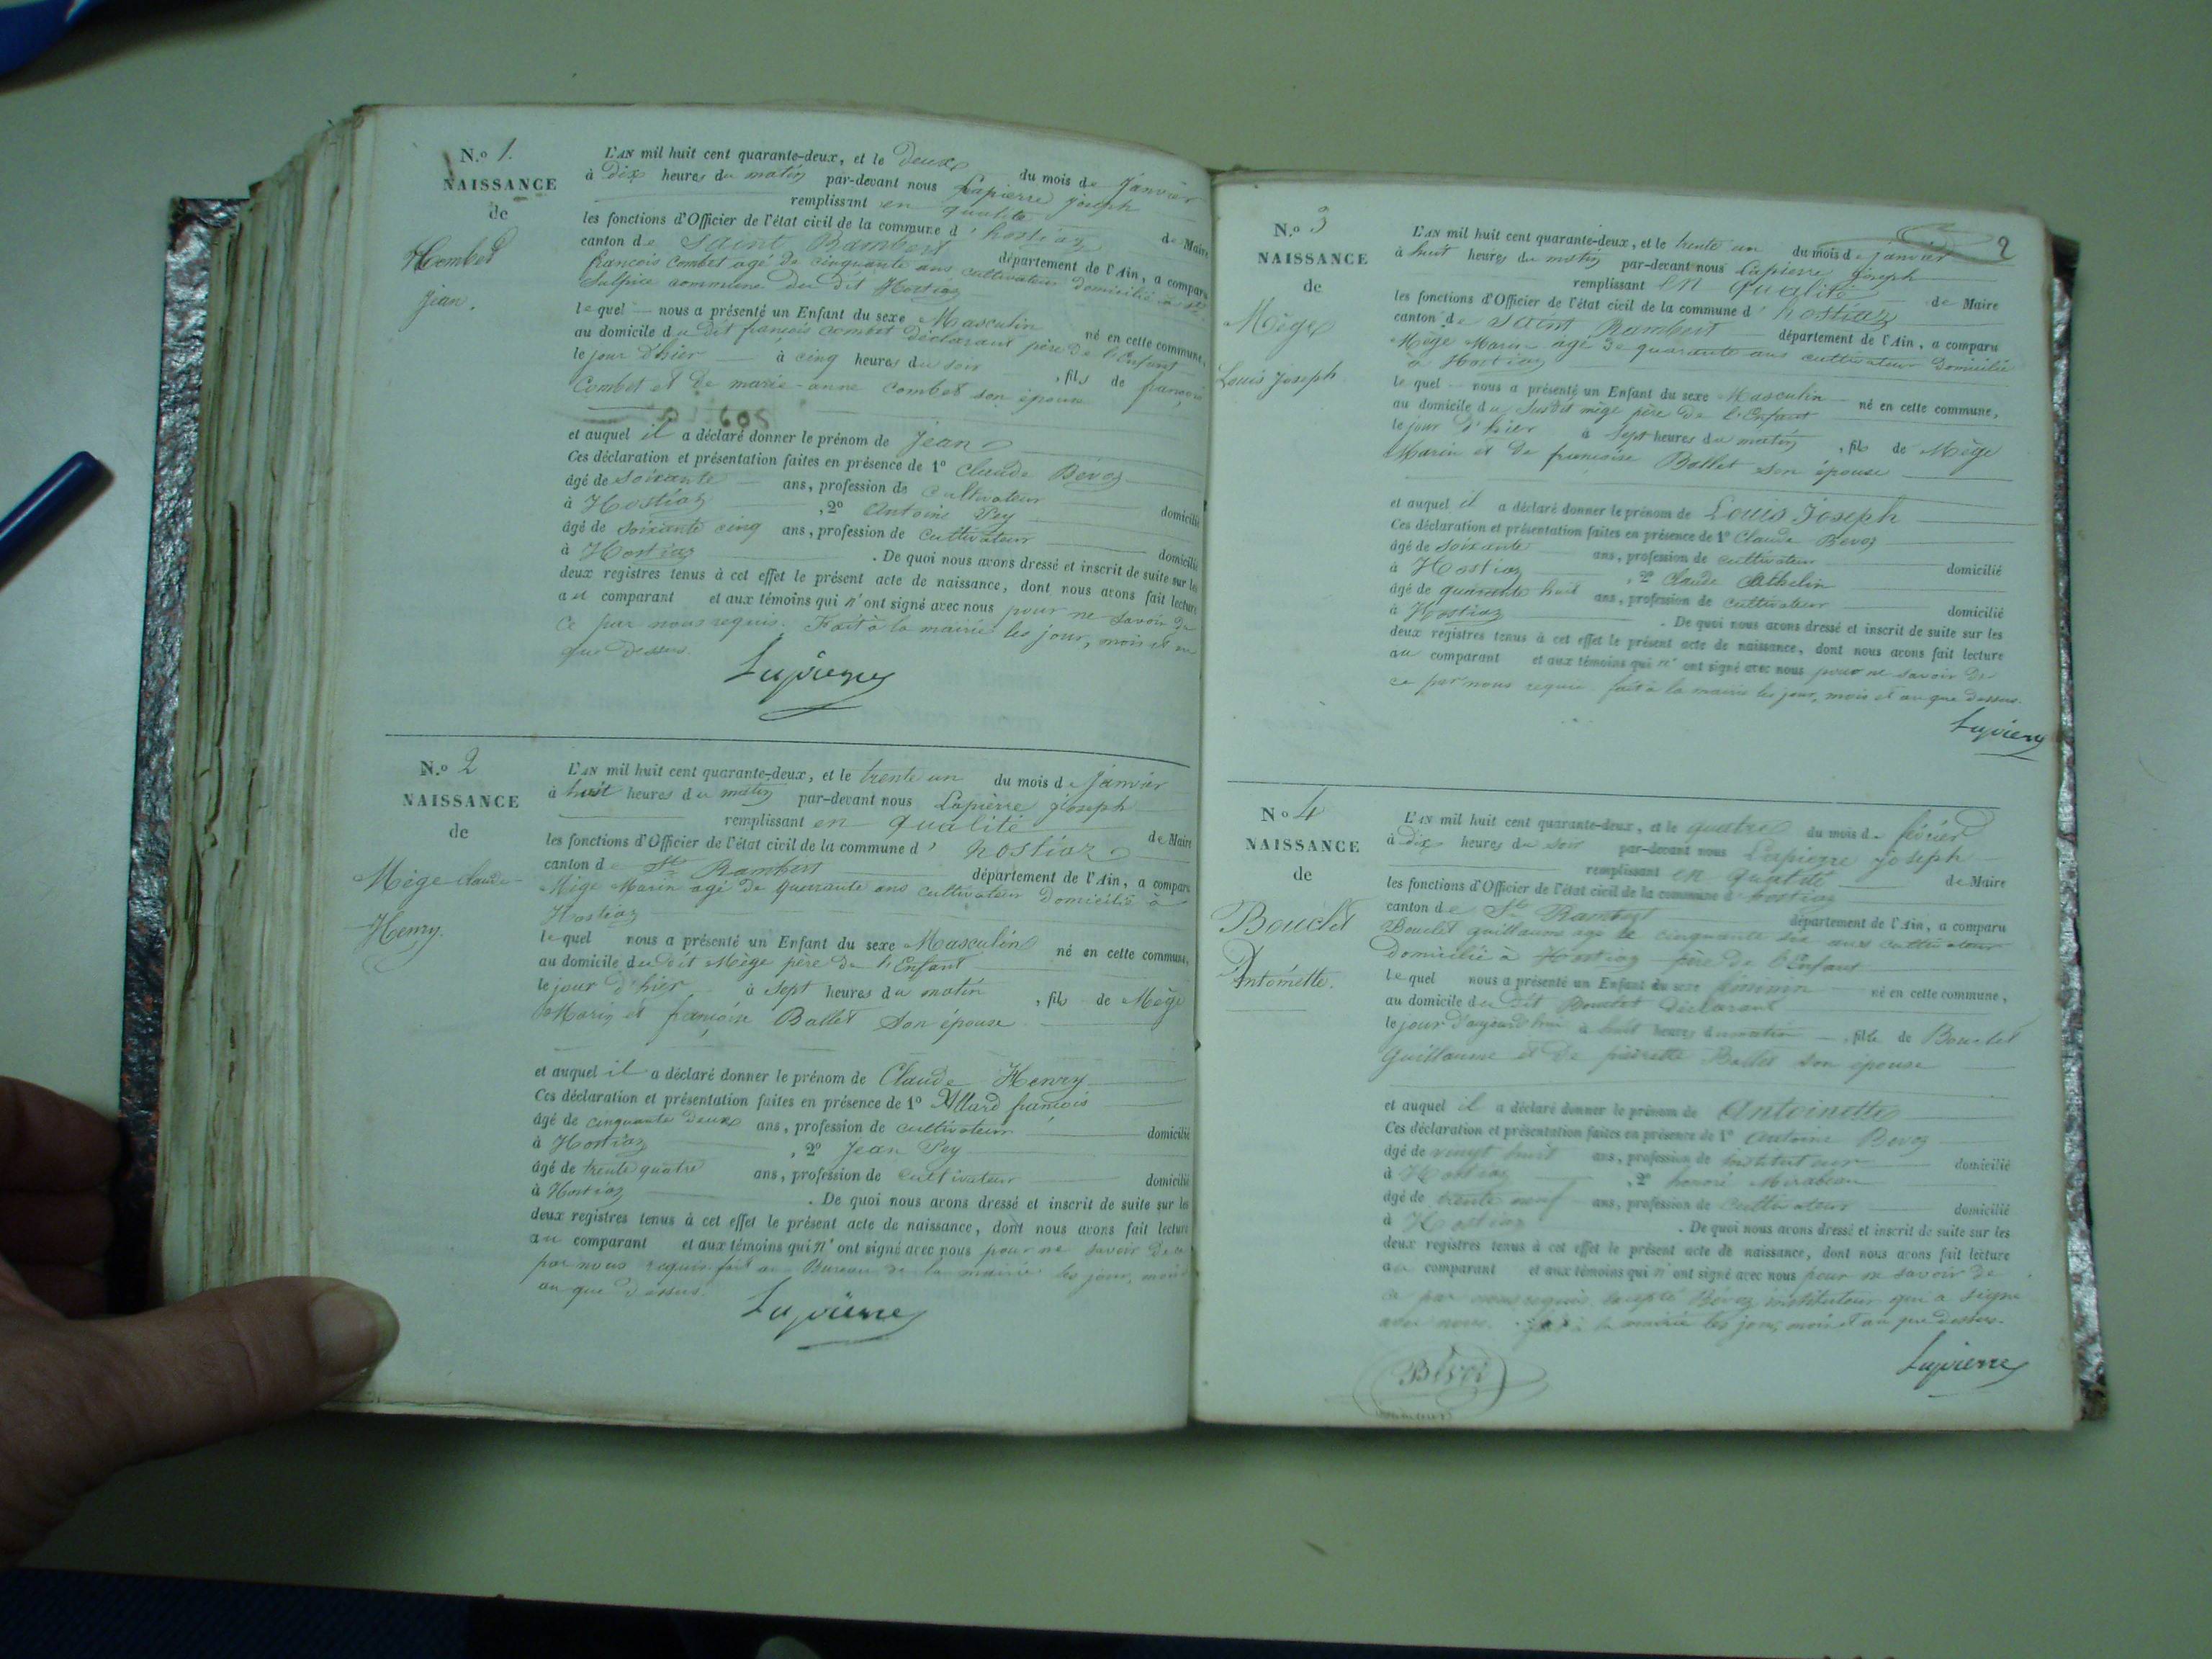 N.o 1.
NAISSANCE
de
Combet
jean.
L'AN mil huit cent quarante-deux, et le deux du mois de janvier
à dix heures du matin par-devant nous Lapierre joseph
remplissant en qualité de Maire
les fonctions d'Officier de l'état civil de la commune d' hostiaz
canton de Saint Rambert département de l'Ain, a comparu
francois Combet agé de cinquante ans cultivateur domicilié à St
Sulpice commune du dit Hostiaz
lequel nous a présenté un Enfant du sexe Masculin né en cette commune,
au domicile du dit françois Combet déclarant père de l'Enfant
le jour d'hier à cinq heures du soir , fils de françois
Combet et de marie-anne Combet son épouse
et auquel il a déclaré donner le prénom de jean
Ces déclaration et présentation faites en présence de 1o Claude Bévoz
âgé de soixante ans, profession de cultivateur domicilié
à Hostiaz , 2o Antoine Pey
âgé de soixante cinq ans, profession de cultivateur domicilié
à Hostiaz . De quoi nous avons dressé et inscrit de suite sur les
deux registres tenus à cet effet le présent acte de naissance, dont nous avons fait lecture
au comparant et aux témoins qui n'ont signé avec nous pour ne savoir de
ce par nous requis. Fait à la mairie les jour, mois et an
que dessus.
Lapierre
N.o 2
NAISSANCE
de
Mège claude
Henry.
L'AN mil huit cent quarante-deux, et le trente un du mois de janvier
à huit heures du matin par-devant nous Lapierre joseph
remplissant en qualité de Maire
les fonctions d'Officier de l'état civil de la commune d' hostiaz
canton de St Rambert département de l'Ain, a comparu
Mège Marin agé de quarante ans cultivateur domicilié à
Hostiaz
lequel nous a présenté un Enfant du sexe Masculin né en cette commune,
au domicile du dit Mège père de l'Enfant
le jour d'hier à sept heures du matin , fils de Mège
Marin et françoise Ballet son épouse
et auquel il a déclaré donner le prénom de Claude Henry
Ces déclaration et présentation faites en présence de 1o Allard françois
âgé de cinquante deux ans, profession de cultivateur domicilié
à Hostiaz , 2o Jean Pey
âgé de trente quatre ans, profession de cultivateur domicilié
à Hostiaz . De quoi nous avons dressé et inscrit de suite sur les
deux registres tenus à cet effet le présent acte de naissance, dont nous avons fait lecture
au comparant et aux témoins qui n'ont signé avec nous pour ne savoir de ce
par nous requis fait au Bureau de la mairie les jour, mois
an que dessus.
Lapierre
2
N.o 3
NAISSANCE
de
Mège
Louis Joseph
L'AN mil huit cent quarante-deux, et le trente un du mois de janvier
à huit heures du matin par-devant nous Lapierre joseph
remplissant en qualité de Maire
les fonctions d'Officier de l'état civil de la commune d' hostiaz
canton de Saint Rambert département de l'Ain, a comparu
Mège Marin agé de quarante ans cultivateur domicilié
à Hostiaz
lequel nous a présenté un Enfant du sexe Masculin né en cette commune,
au domicile du susdit mège père de l'Enfant
le jour d'hier à sept heures du matin , fils de Mège
Marin et de francoise Ballet son épouse
et auquel il a déclaré donner le prénom de Louis Joseph
Ces déclaration et présentation faites en présence de 1o Claude Bevoz
âgé de soixante ans, profession de cultivateur domicilié
à Hostiaz , 2o Claude Athelin
âgé de quarante huit ans, profession de cultivateur domicilié
à Hostiaz . De quoi nous avons dressé et inscrit de suite sur les
deux registres tenus à cet effet le présent acte de naissance, dont nous avons fait lecture
au comparant et aux témoins qui n'ont signé avec nous pour ne savoir de
ce par nous requis fait à la mairie les jour, mois et an que dessus.
Lapierre
No 4
NAISSANCE
de
Bouclet
Antoinette.
L'AN mil huit cent quarante-deux, et le quatre du mois de févrièr
à dix heures du soir par-devant nous Lapierre joseph
remplissant en qualité de Maire
les fonctions d'Officier de l'état civil de la commune d' hostiaz
canton de St Rambert département de l'Ain, a comparu
Bouclet guillaume agé de cinquante six ans cultivateur
domicilié à Hostiaz père de l'Enfant
lequel nous a présenté un Enfant du sexe féminin né en cette commune,
au domicile du dit Bouclet déclarant
le jour d'aujourd'hui à huit heures du matin , fille de Bouclet
Guillaume et de pierrette Ballet son épouse
et auquel il a déclaré donner le prénom de Antoinette
Ces déclaration et présentation faites en présence de 1o Antoine Bevoz
âgé de vingt huit ans, profession de instituteur domicilié
à Hostiaz , 2o honoré Mirabeau
âgé de trente neuf ans, profession de cultivateur domicilié
à Hostiaz . De quoi nous avons dressé et inscrit de suite sur les
deux registres tenus à cet effet le présent acte de naissance, dont nous avons fait lecture
au comparant et aux témoins qui n'ont signé avec nous pour ne savoir de
ce par nous requis excepté Bévoz instituteur qui a signé
avec nous. fait à la mairie les jour, mois et an que dessus.
Bévoz
Lapierre